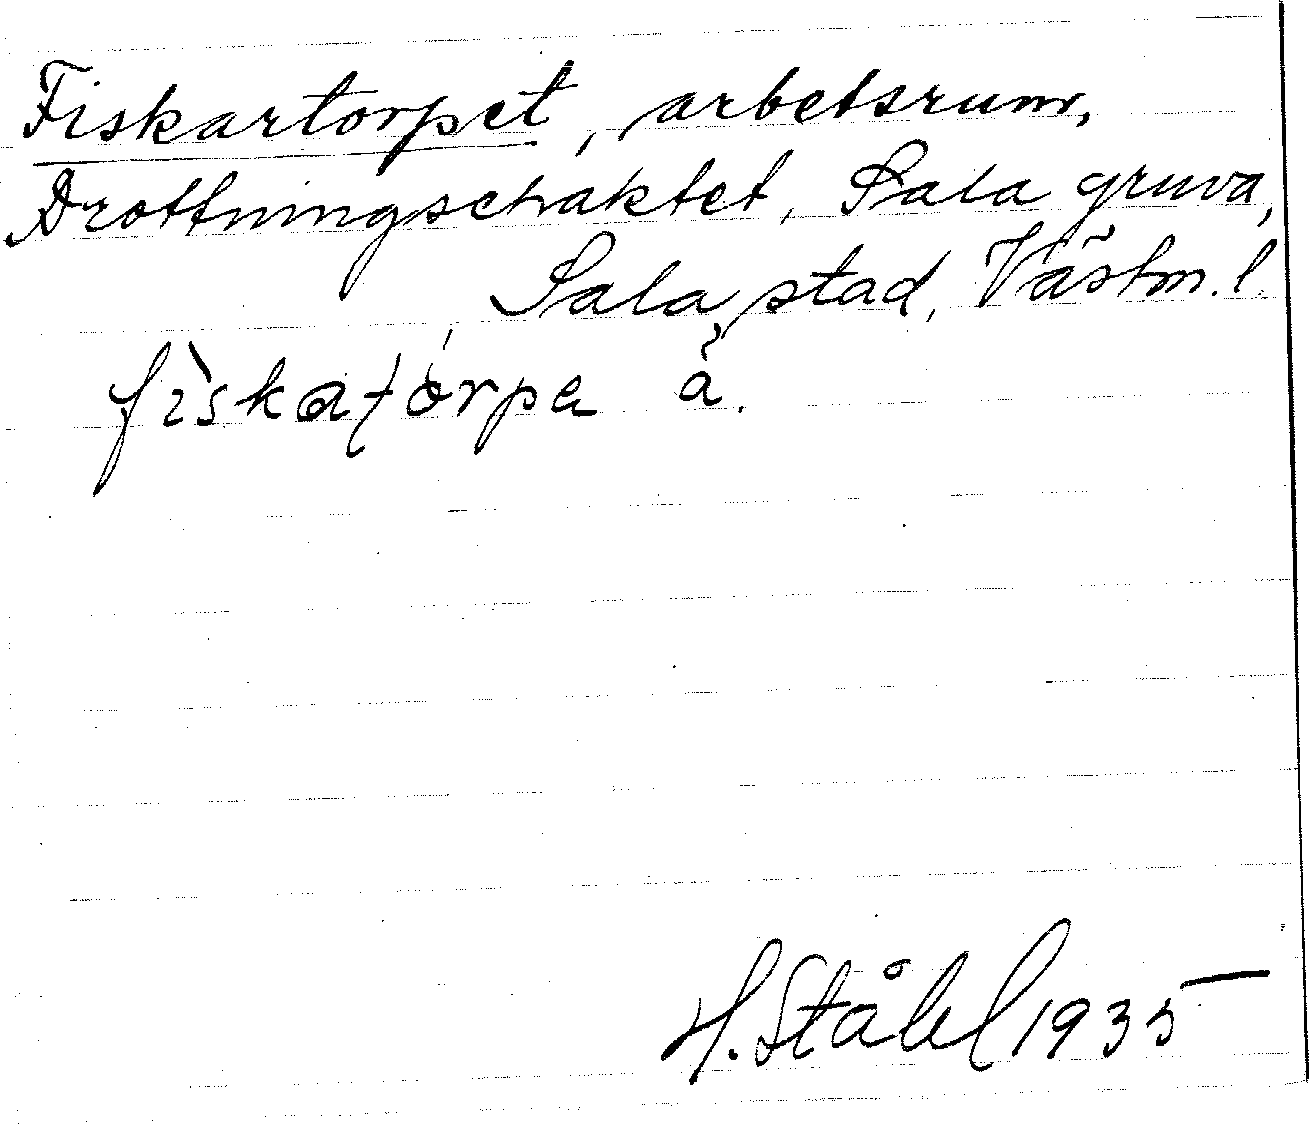 Fiskartorpet, arbetsrum,
Drottningschaktet, Sala gruva,
Sala stad, Västm. l.
fìskatórpa ä̀.
H. Ståhl 1935